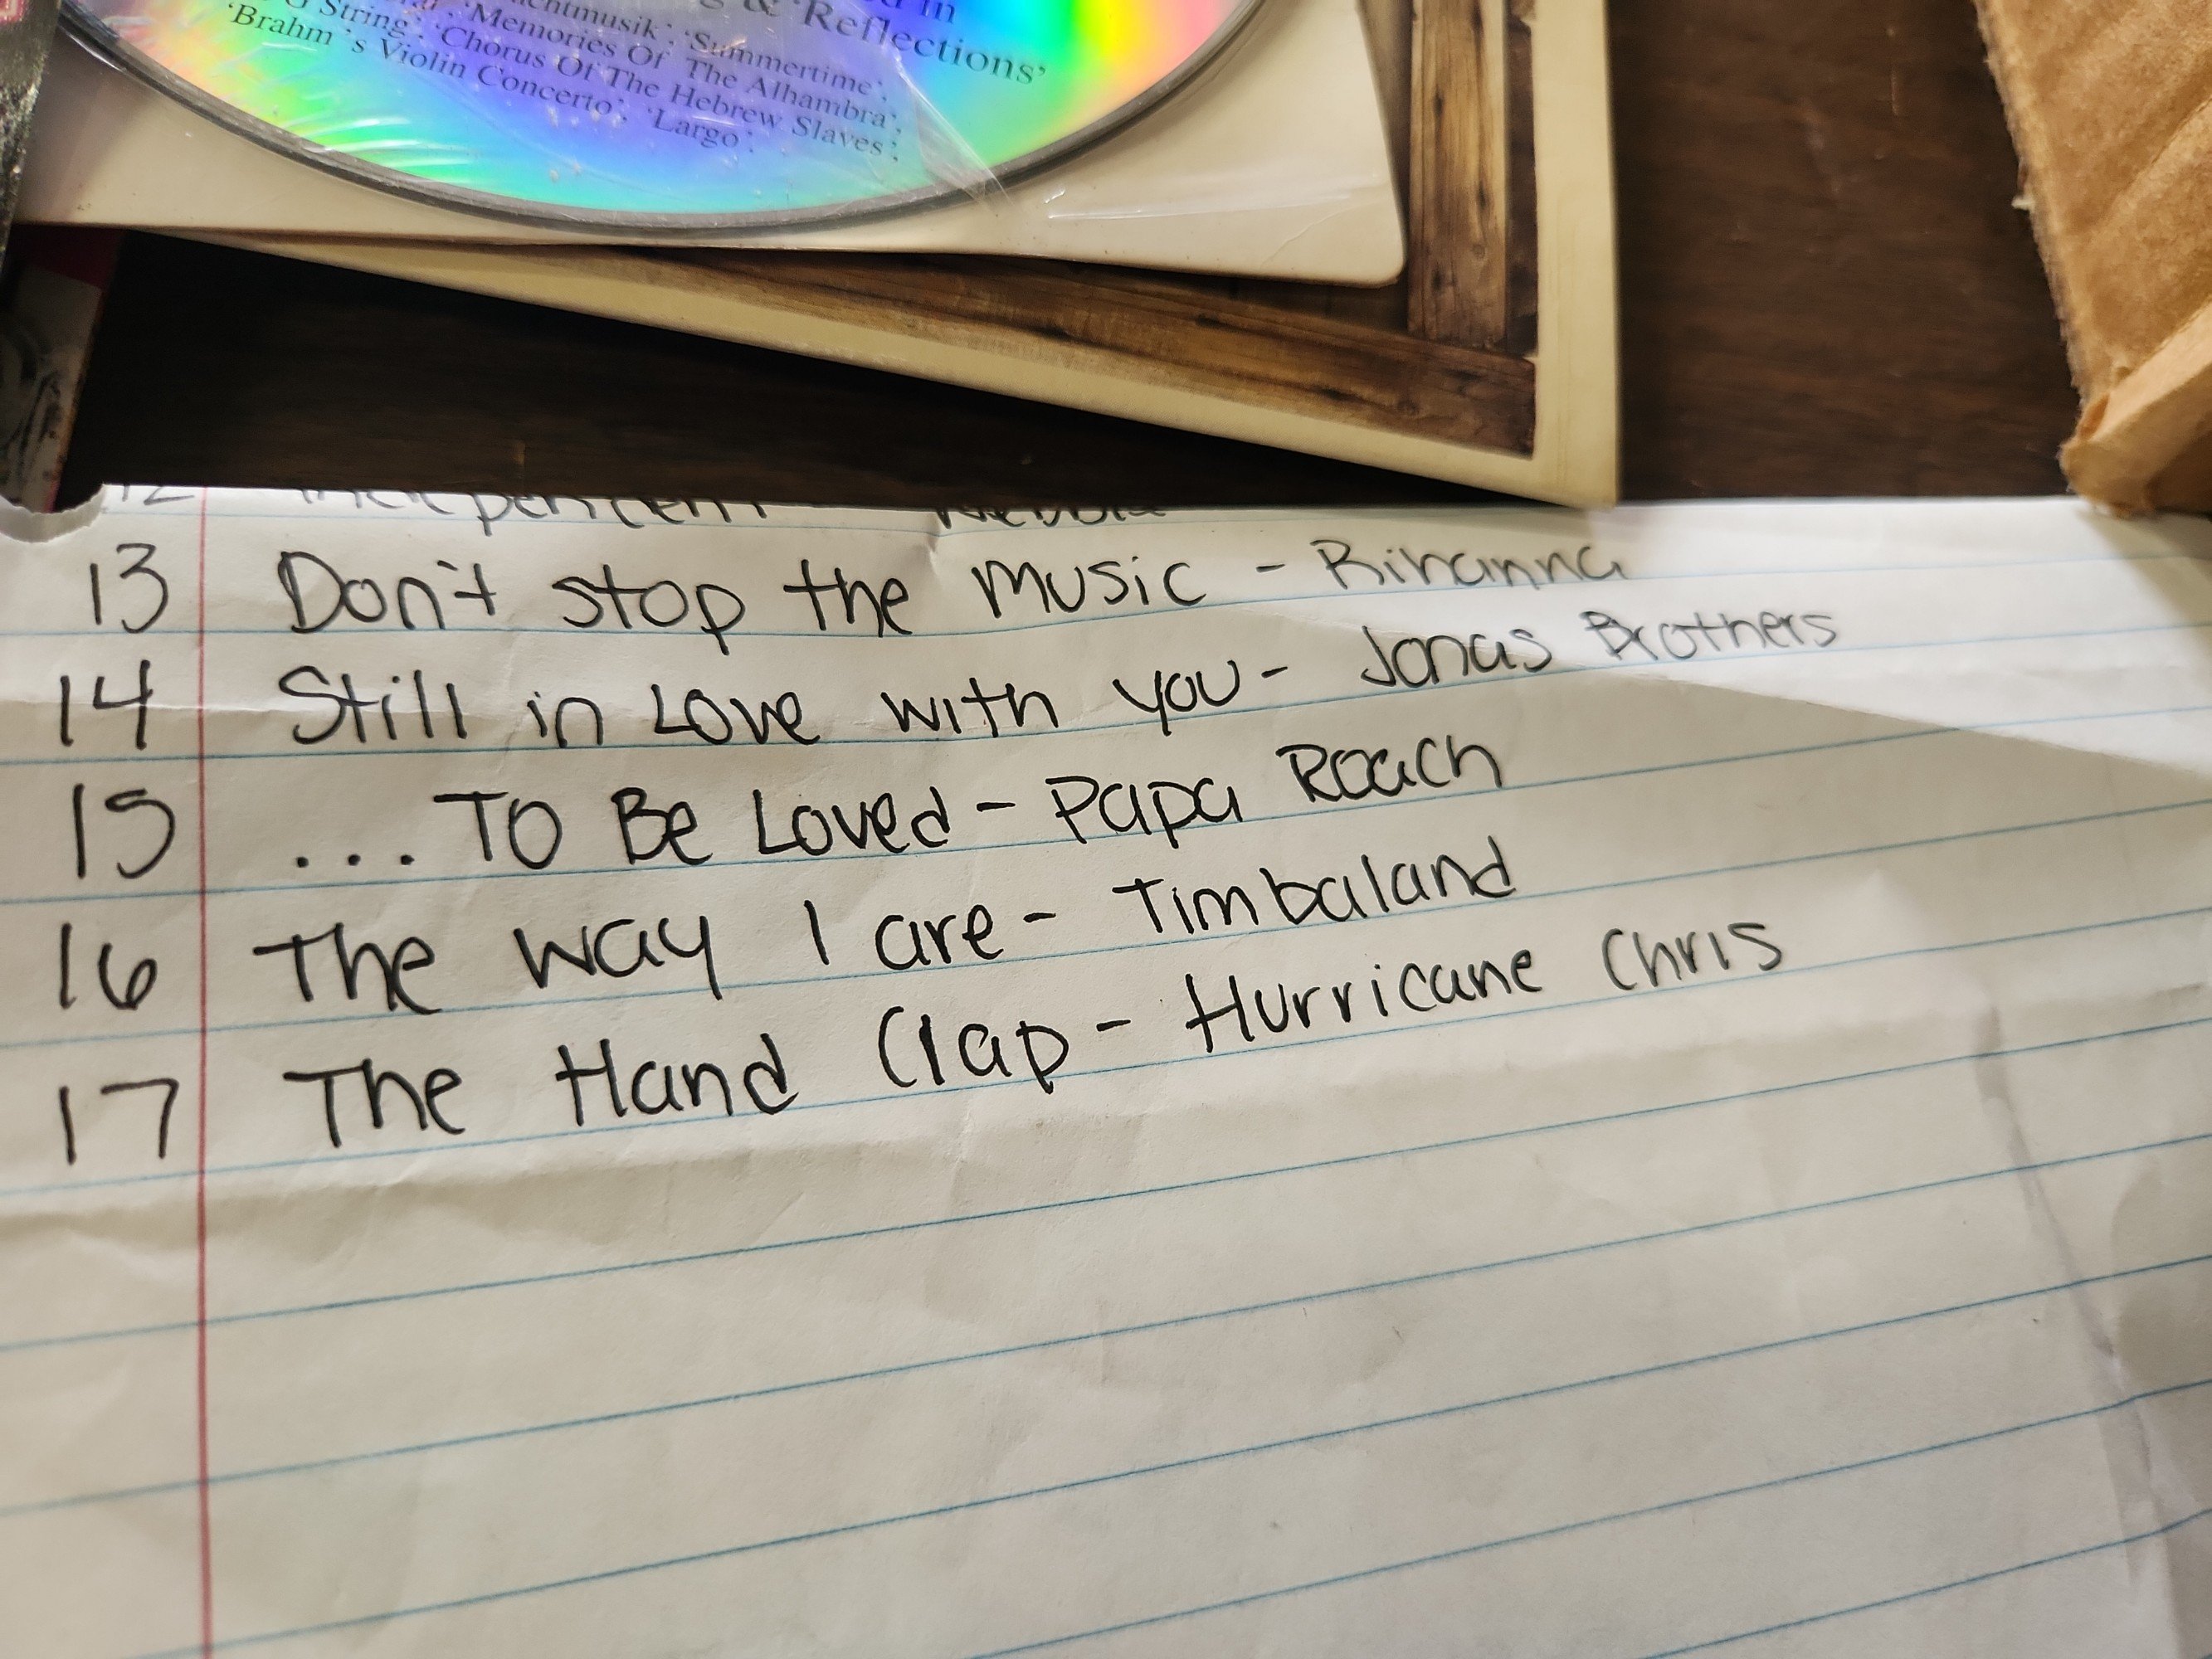 in
& 'Reflections'
'Summertime';
String; 'Memories Of The Alhambra';
'Chorus Of The Hebrew Slaves';
'Brahm's Violin Concerto'; 'Largo';
12 Independent - Webbie
13 Don't stop the music - Rihanna
14 Still in Love with you - Jonas Brothers
15 ... To Be Loved - Papa Roach
16 The way I are - Timbaland
17 The Hand Clap - Hurricane Chris